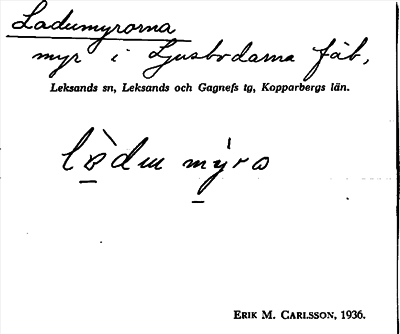 Ladumyrorna
myr i Ljusbodarna fäb,
Leksands sn, Leksands och Gagnefs tg, Kopparbergs län.
lòdu mýra
ERIK M. CARLSSON, 1936.